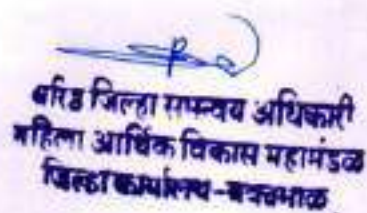 वरिष्ठ जिल्हा समन्वय अधिकारी
महिला आर्थिक विकास महामंडळ
जिल्हा कार्यालय-यवतमाळ